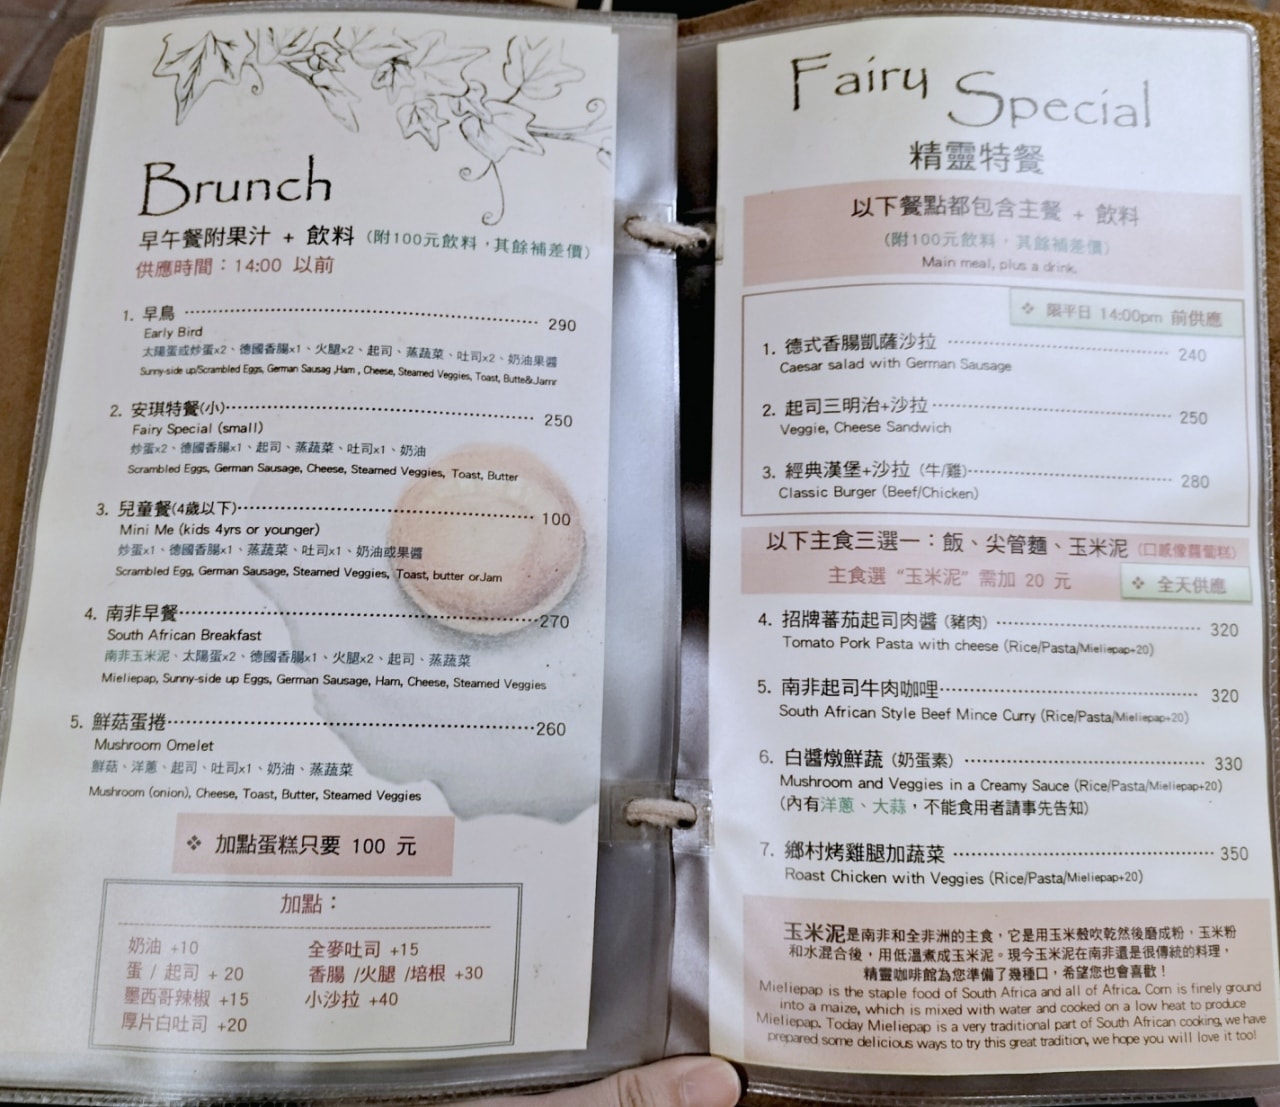 Brunch
早午餐附果汁 + 飲料 (附100元飲料，其餘補差價)
供應時間：14:00 以前
1. 早鳥 290
Early Bird
太陽蛋或炒蛋x2、德國香腸x1、火腿x2、起司、蒸蔬菜、吐司x2、奶油果醬
Sunny-side up/Scrambled Eggs, German Sausag ,Ham , Cheese, Steamed Veggies, Toast, Butte&Jamr
2. 安琪特餐(小) 250
Fairy Special (small)
炒蛋x2、德國香腸x1、起司、蒸蔬菜、吐司x1、奶油
Scrambled Eggs, German Sausage, Cheese, Steamed Veggies, Toast, Butter
3. 兒童餐(4歲以下) 100
Mini Me (kids 4yrs or younger)
炒蛋x1、德國香腸x1、蒸蔬菜、吐司x1、奶油或果醬
Scrambled Egg, German Sausage, Steamed Veggies, Toast, butter orJam
4. 南非早餐 270
South African Breakfast
南非玉米泥、太陽蛋x2、德國香腸x1、火腿x2、起司、蒸蔬菜
Mieliepap, Sunny-side up Eggs, German Sausage, Ham, Cheese, Steamed Veggies
5. 鮮菇蛋捲 260
Mushroom Omelet
鮮菇、洋蔥、起司、吐司x1、奶油、蒸蔬菜
Mushroom (onion), Cheese, Toast, Butter, Steamed Veggies
❖ 加點蛋糕只要 100 元
加點：
奶油 +10
蛋 / 起司 + 20
墨西哥辣椒 +15
厚片白吐司 +20
全麥吐司 +15
香腸 /火腿 /培根 +30
小沙拉 +40
Fairy Special
精靈特餐
以下餐點都包含主餐 + 飲料
(附100元飲料，其餘補差價)
Main meal, plus a drink.
❖ 限平日 14:00pm 前供應
1. 德式香腸凱薩沙拉 240
Caesar salad with German Sausage
2. 起司三明治+沙拉 250
Veggie, Cheese Sandwich
3. 經典漢堡+沙拉 (牛/雞) 280
Classic Burger (Beef/Chicken)
以下主食三選一：飯、尖管麵、玉米泥 (口感像蘿蔔糕)
主食選 “玉米泥” 需加 20 元
❖ 全天供應
4. 招牌蕃茄起司肉醬 (豬肉) 320
Tomato Pork Pasta with cheese (Rice/Pasta/Mieliepap+20)
5. 南非起司牛肉咖哩 320
South African Style Beef Mince Curry (Rice/Pasta/Mieliepap+20)
6. 白醬燉鮮蔬 (奶蛋素) 330
Mushroom and Veggies in a Creamy Sauce (Rice/Pasta/Mieliepap+20)
(內有洋蔥、大蒜，不能食用者請事先告知)
7. 鄉村烤雞腿加蔬菜 350
Roast Chicken with Veggies (Rice/Pasta/Mieliepap+20)
玉米泥是南非和全非洲的主食，它是用玉米殼吹乾然後磨成粉，玉米粉
和水混合後，用低溫煮成玉米泥。現今玉米泥在南非還是很傳統的料理，
精靈咖啡館為您準備了幾種口，希望您也會喜歡！
Mieliepap is the staple food of South Africa and all of Africa. Corn is finely ground
into a maize, which is mixed with water and cooked on a low heat to produce
Mieliepap. Today Mieliepap is a very traditional part of South African cooking, we have
prepared some delicious ways to try this great tradition, we hope you will love it too!